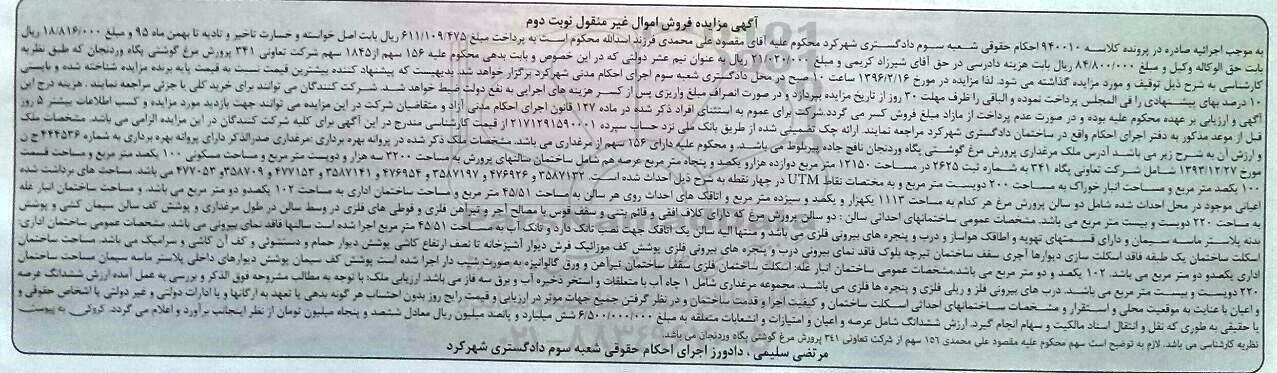 آگهی مزایده فروش اموال غیر منقول نوبت دوم
به موجب اجرائیه صادره در پرونده کلاسه ۹۴۰۰۱۰ احکام حقوقی شعبه سوم دادگستری شهرکرد محکوم علیه آقای مقصود علی محمدی فرزند اسدالله محکوم است به پرداخت مبلغ ۶۱۱/۱۰۹/۴۷۵ ریال بابت اصل خواسته و خسارت تاخیر و تادیه تا بهمن ماه ۹۵ و مبلغ ۱۸/۸۱۶/۰۰۰ ریال
بابت حق الوکاله وکیل و مبلغ ۸۴/۸۰۰/۰۰۰ ریال بابت هزینه دادرسی در حق آقای شیرزاد کریمی و مبلغ ۲۱/۰۲۰/۰۰۰ ریال به عنوان نیم عشر دولتی که در این خصوص و بابت بدهی محکوم علیه ۱۵۶ سهم از ۱۸۴۵ سهم شرکت تعاونی ۳۴۱ پرورش مرغ گوشتی پگاه وردنجان که طبق نظریه
کارشناسی به شرح ذیل توقیف و مورد مزایده گذاشته می شود. لذا مزایده در مورخ ۱۳۹۶/۲/۱۶ ساعت ۱۰ صبح در محل دادگستری شعبه سوم اجرای احکام مدنی شهرکرد برگزار خواهد شد. بدیهیست که پیشنهاد کننده بیشترین قیمت نسبت به قیمت پایه برنده مزایده شناخته شده و بایستی
۱۰ درصد بهای پیشنهادی را فی المجلس پرداخت نموده و الباقی را ظرف مهلت ۳۰ روز از تاریخ مزایده بپردازد و در صورت انصراف مبلغ واریزی پس از کسر هزینه های اجرایی به نفع دولت ضبط خواهد شد. شرکت کنندگان می توانند برای خرید کلی یا جزئی مراجعه نمایند. هزینه درج این
آگهی و ارزیابی بر عهده محکوم علیه بوده و در صورت عدم پرداخت از مازاد مبلغ فروش کسر می گردد. شرکت برای عموم به استثنای افراد ذکر شده در ماده ۱۲۷ قانون اجرای احکام مدنی آزاد و متقاضیان شرکت در این مزایده می توانند جهت بازدید مورد مزایده و کسب اطلاعات بیشتر ۵ روز
قبل از موعد مذکور به دفتر اجرای احکام واقع در ساختمان دادگستری شهرکرد مراجعه نمایند. ارائه چک تضمینی شده از طریق بانک ملی نزد حساب سپرده ۲۱۷۱۲۹۱۵۹۰۰۰۱ از قیمت کارشناسی مندرج در این آگهی برای کلیه شرکت کنندگان در این مزایده الزامی می باشد. مشخصات ملک
و ارزش آن به شرح زیر می باشد. آدرس ملک مرغداری پرورش مرغ گوشتی پگاه وردنجان نافچ جاده پیربلوط می باشند. و محکوم علیه دارای ۱۵۶ سهم از مرغداری می باشد. مشخصات ملک ذکر شده در پروانه بهره برداری :مرغداری صدرالذکر دارای پروانه بهره برداری به شماره ۴۴۴۵۳۶ ج ن
مورخ ۱۳۹۳/۱۲/۲۷ شامل شرکت تعاونی پگاه ۳۴۱ به شماره ثبت ۲۶۲۵ در مساحت ۱۲۱۵۰ متر مربع دوازده هزار و یکصد و پنجاه متر مربع عرصه هم شامل ساختمان سالنهای پرورش به مساحت ۳۲۰۰ سه هزار و دویست متر مربع و مساحت مسکونی ۱۰۰ یکصد متر مربع و مساحت قسمت
۱۰۰ یکصد متر مربع و مساحت انبار خوراک به مساحت ۲۰۰ دویست متر مربع و به مختصات نقاط UTM در چهار نقطه به شرح ذیل احداث شده است. ۳۵۸۷۱۲۲ و ۴۷۶۹۲۶ و ۳۵۸۷۱۹۷ و ۴۷۶۹۵۴ و ۳۵۸۷۱۴۱ و ۴۷۷۱۵۳ و ۳۵۸۷۰۹ و ۴۷۷۰۵۳ می باشد. مساحت های برداشت شده
اعیانی موجود در محل احداث شده شامل دو سالن پرورش مرغ هر کدام به مساحت ۱۱۱۳ یکهزار و یکصد و سیزده متر مربع و اتاقک های احداث روی هر سالن به مساحت ۴۵/۵۱ متر مربع و مساحت ساختمان اداری به مساحت ۱۰۲ یکصدو دو متر می باشد. و مساحت ساختمان انبار غله
به مساحت ۲۲۰ دویست و بیست متر مربع می باشد. مشخصات عمومی ساختمانهای احداثی سالن : دو سالن پرورش مرغ که دارای کلاف افقی و قائم بتنی و سقف قوس با مصالح آجر و تیرآهن فلزی و قوطی های فلزی در وسط سالن در طول مرغداری و پوشش کف سالن سیمان کشی و پوشش
بدنه پلاستر ماسه سیمان و دارای قسمتهای تهویه و اطاقک هواساز و درب و پنجره های بیرونی فلزی می باشد و منتها الیه سالن یک اتاقک جهت نصب تانک دارد و تانک آب به مساحت ۴۵/۵۱ متر مربع اجرا شده است سالنها فاقد نمای بیرونی می باشد. مشخصات عمومی ساختمان اداری:
اسکلت ساختمان یک طبقه فاقد اسکلت سازی دیوارها آجری سقف ساختمان تیرچه بلوک فاقد نمای بیرونی درب و پنجره های بیرونی فلزی پوشش کف موزائیک فرش دیوار آشپزخانه تا نصف ارتفاع کاشی پوشش دیوار حمام و دستشوئی و کف آن کاشی و سرامیک می باشد. مساحت ساختمان
اداری یکصدو دو متر مربع می باشد. ۱۰۲ یکصد و دو متر مربع می باشد.مشخصات عمومی ساختمان انبار غله: اسکلت ساختمان فلزی سقف ساختمان تیرآهن و ورق گالوانیزه به صورت شیب دار اجرا شده است پوشش کف سیمان پوشش دیوارهای داخلی پلاستر ماسه سیمان مساحت ساختمان
۲۲۰ دویست و بیست متر مربع می باشند. درب های بیرونی فلز و ریلی فلزی و پنجره ها فلزی می باشند. مجموعه مرغداری شامل ۱ چاه آب با متعلقات و استخر ذخیره آب و برق سه فاز می باشد. ارزیابی ملک: با توجه به مطالب مشروحه فوق الذکر و بررسی به عمل آمده ارزش ششدانگ عرصه
و اعیان با عنایت به موقعیت محلی و استقرار و مشخصات ساختمانهای احداثی اسکلت ساختمان و کیفیت اجرا و قدمت ساختمان و در نظر گرفتن جمیع جهات موثر در ارزیابی و قیمت رایج روز بدون احتساب هر گونه بدهی یا تعهد به ارگانها و یا ادارات دولتی و غیر دولتی یا اشخاص حقوقی و
یا حقیقی به طوری که نقل و انتقال اسناد مالکیت و سهام انجام گیرد. ارزش ششدانگ شامل عرصه و اعیان و امتیازات و انشعابات متعلقه به مبلغ ۶/۵۰۰/۰۰۰/۰۰۰ شش میلیارد و پانصد میلیون ریال معادل ششصد و پنجاه میلیون تومان از نظر اینجانب برآورد و اعلام می گردد. کروکی به پیوست
نظریه کارشناسی می باشد. لازم به توضیح است سهم محکوم علیه مقصود علی محمدی ۱۵۶ سهم از شرکت تعاونی ۳۴۱ پرورش مرغ گوشتی پگاه وردنجان می باشد.
مرتضی سلیمی ، دادورز اجرای احکام حقوقی شعبه سوم دادگستری شهرکرد